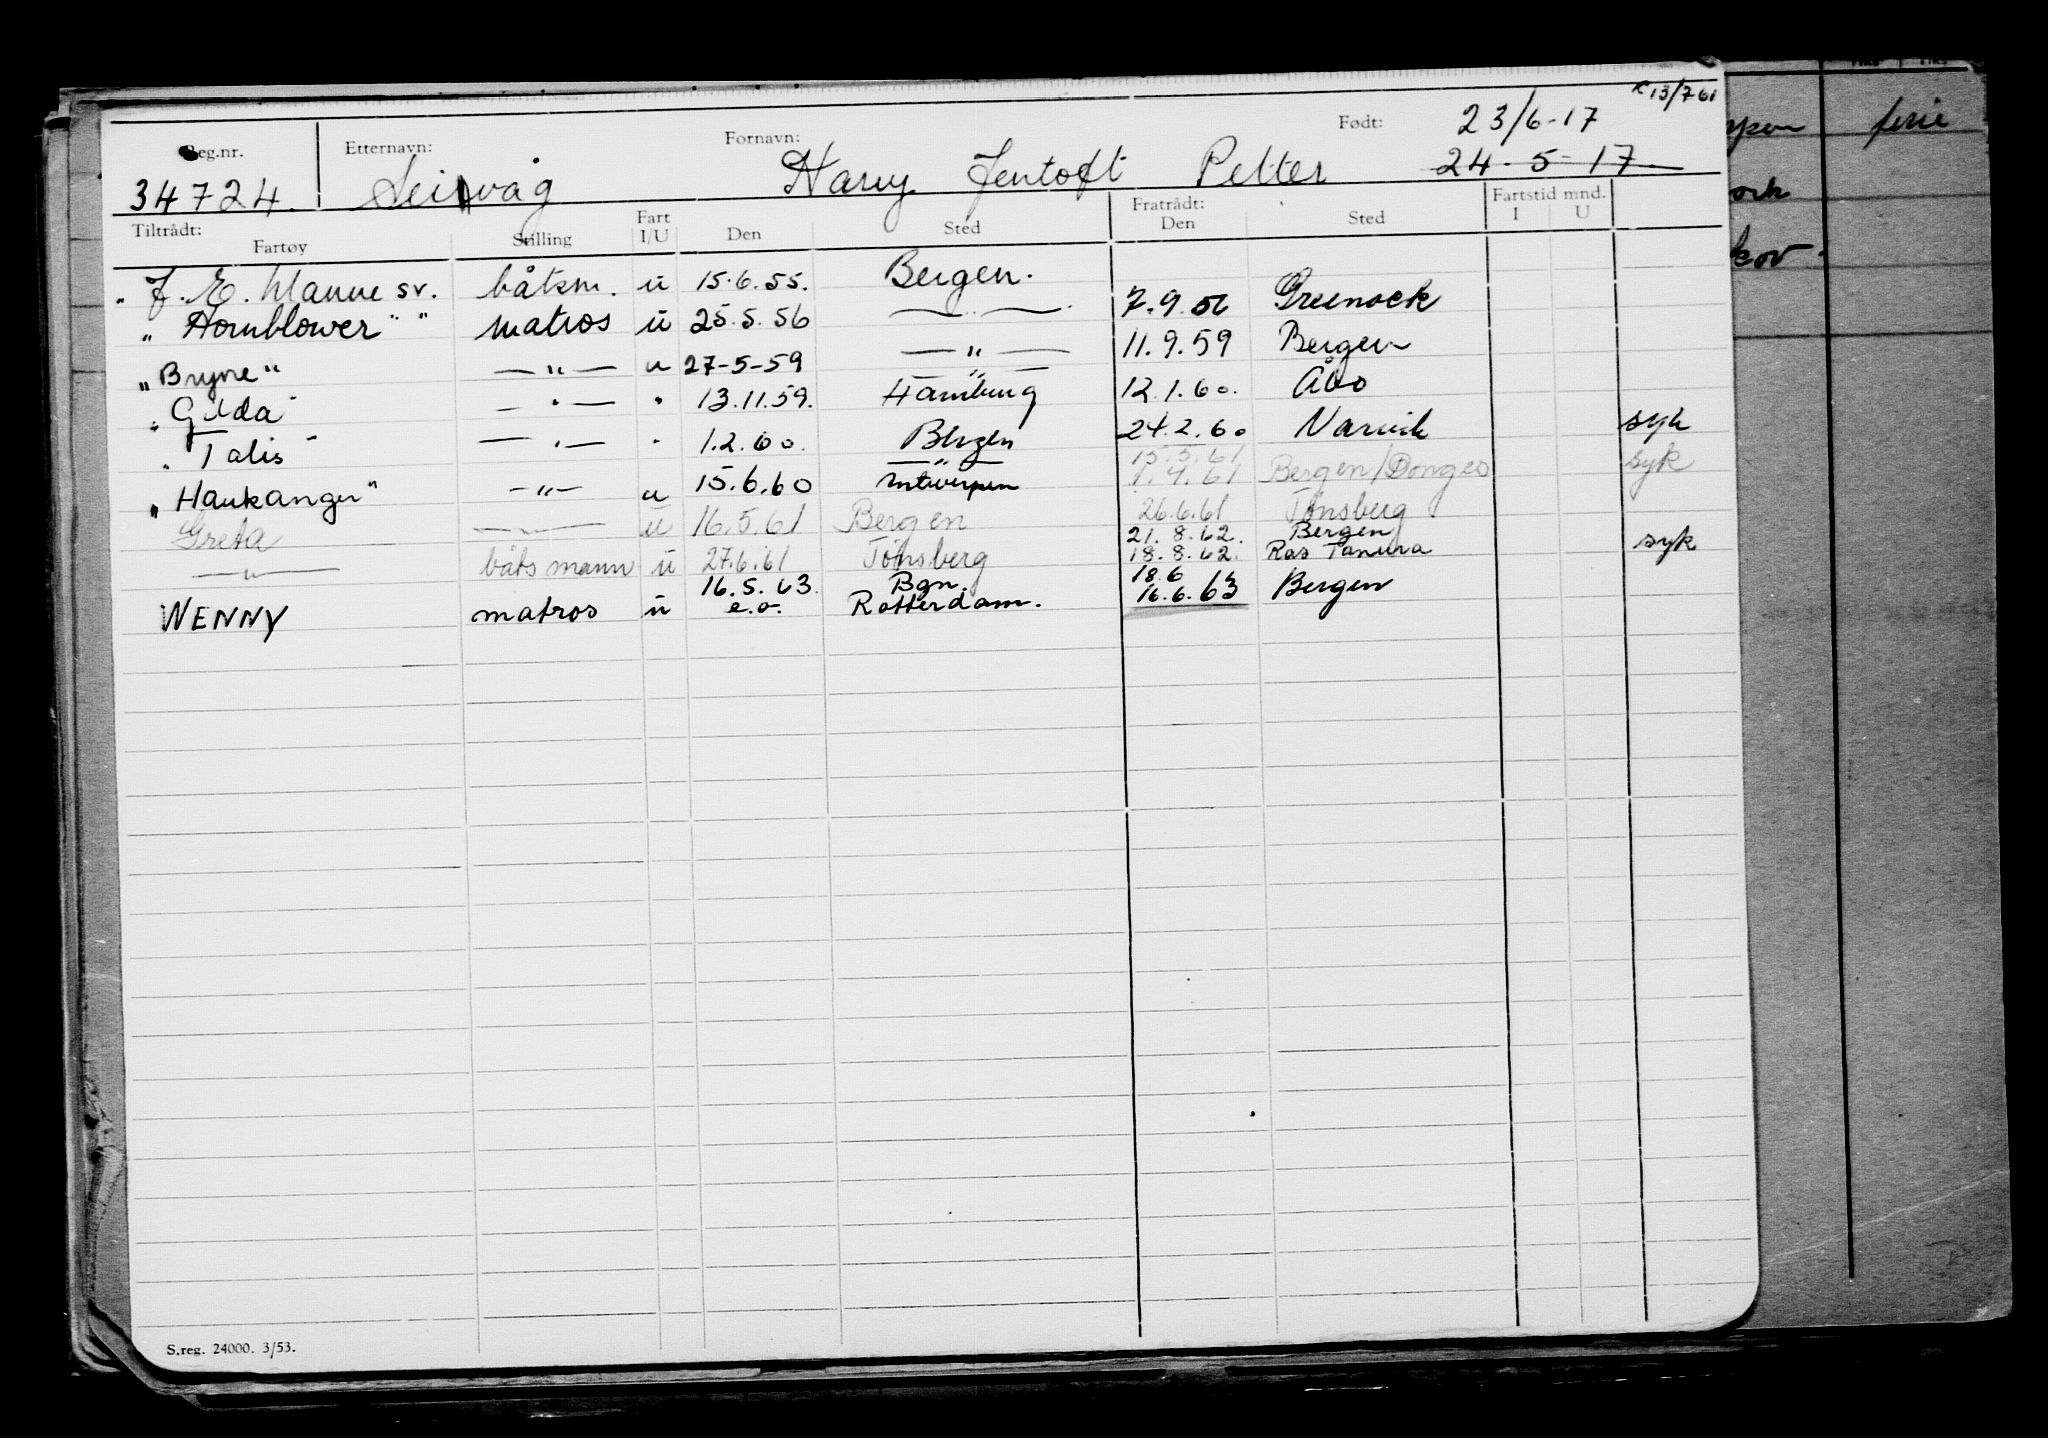 K 13/7 61
Reg.nr. Etternavn: Fornavn: Født: 23/6-17
34724. Seivåg Harry Jentoft Petter 24-5-17
Tiltrådt: Fartøy Stilling Fart I/U Den Sted Fratrådt: Den Sted Fartstid mnd. I U
"J. E. Manne sv. båtsm. u 15.6.55. Bergen.
"Hornblower" " matros u 25.5.56 — " — 7.9.56 Greenock
"Bryne" — " — u 27-5-59 — " — 11.9.59 Bergen
"Gilda" — " — " 13.11.59. Hamburg 12.1.60. Åbo
"Talis" — " — " 1.2.60. Bergen 24.2.60 Narvik syk
"Haukanger" — " — u 15.6.60 Antwerpen 15.5.61 1.4.61 Bergen/Donges syk
Greta — " — u 16.5.61 Bergen 26.6.61 Tønsberg
— " — båtsmann u 27.6.61 Tønsberg 21.8.62. 18.8.62. Bergen Ras Tanura syk
WENNY matros u 16.5.63. e.o. Bgn. Rotterdam. 18.6 16.6.63 Bergen
S.reg. 24000. 3/53.
ferie